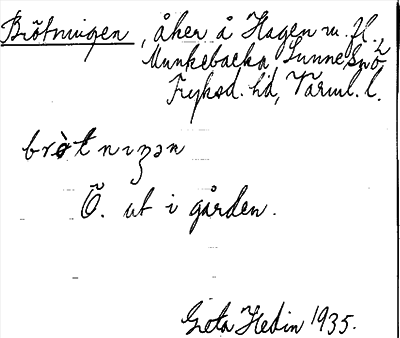 Brötningen, åker å Hagen m. fl.,
Munkebacka, Sunne sn
Fryksd. hd, Värml. l.
bròtnıŋən
Ö. ut i gården.
Greta Hedin 1935.